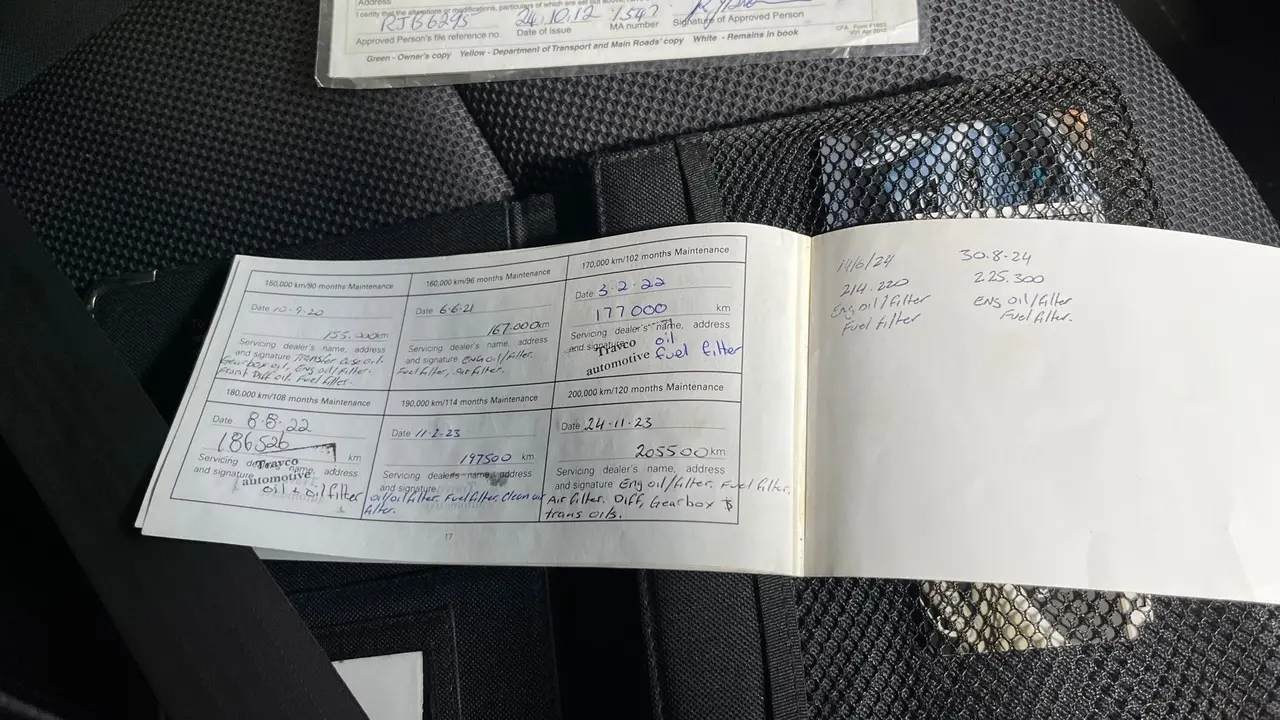 Address
I certify that the alterations or modifications, particulars of which are set out above, have
RJB6295 24.10.12 1547
Approved Person's file reference no. Date of Issue MA number Signature of Approved Person
Green - Owner's copy Yellow - Department of Transport and Main Roads' copy White - Remains in book
CPA Form F1803
V01 Apr 2012
150,000 km/90 months Maintenance
Date 10-9-20
155.000km
Servicing dealer's name, address
and signature Transfer Case oil.
Gearbox oil, Eng oil/filter.
Front Diff oil. Fuel filter.
160,000 km/96 months Maintenance
Date 6-6-21
167.000km
Servicing dealer's name, address
and signature Eng oil/filter.
Fuel filter, Air filter.
170,000 km/102 months Maintenance
Date 3-2-22
177000 km
Servicing dealer's name, address
and signature oil
Trayco
automotive
fuel filter
180,000 km/108 months Maintenance
Date 8-8-22
186526 km
Servicing dealer's name, address
and signature
Trayco
automotive
oil + oil filter
190,000 km/114 months Maintenance
Date 11-2-23
197500 km
Servicing dealer's name, address
and signature
oil/oil filter. Fuel filter, clean air
filter.
200,000 km/120 months Maintenance
Date 24-11-23
205500km
Servicing dealer's name, address
and signature Eng oil/filter. Fuel filter.
Air filter. Diff, Gearbox &
trans oils.
17
14/6/24
214.220
Eng oil/filter
Fuel filter
30.8-24
225.300
Eng oil/filter
Fuel filter.